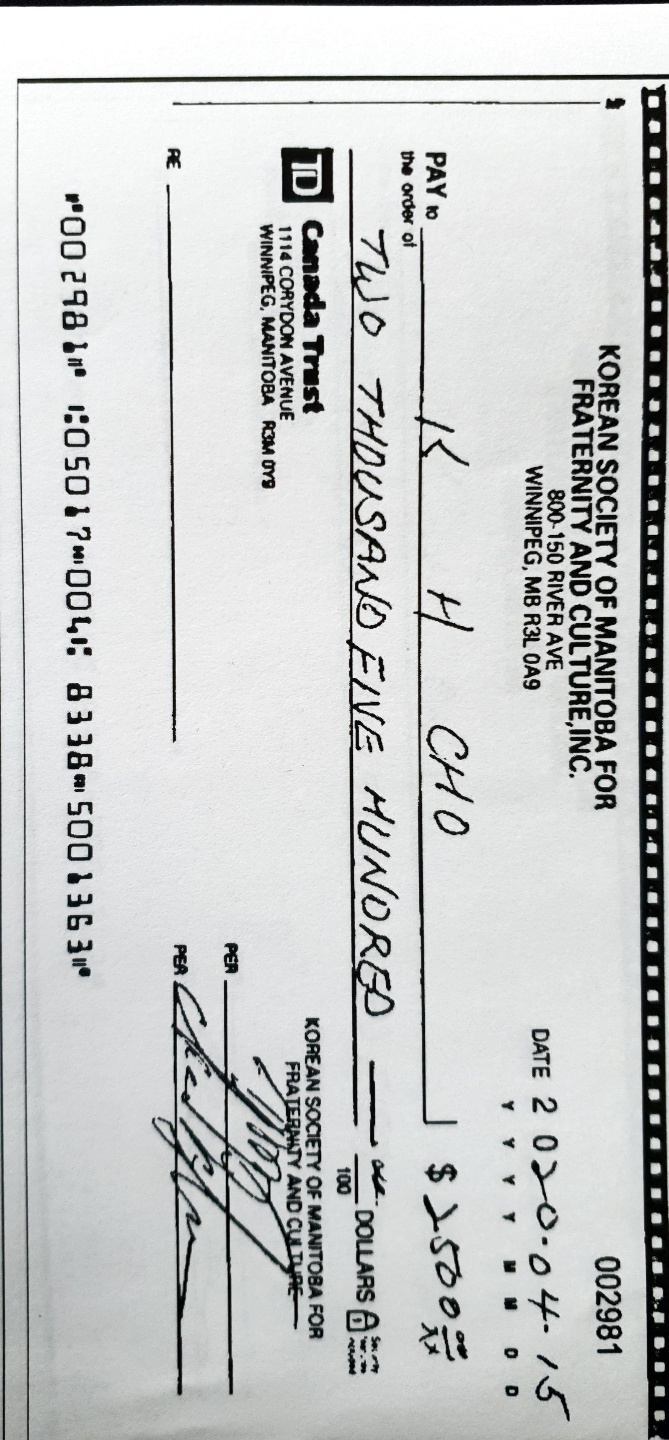 KOREAN SOCIETY OF MANITOBA FOR
FRATERNITY AND CULTURE, INC.
800-150 RIVER AVE
WINNIPEG, MB R3L 0A9
002981
DATE 2020-04-15
Y Y Y Y M M D D
PAY to the order of K H CHO $ 2500 00/XX
TWO THOUSAND FIVE HUNDRED 00/100 DOLLARS
TD Canada Trust
1114 CORYDON AVENUE
WINNIPEG, MANITOBA R3M 0Y9
KOREAN SOCIETY OF MANITOBA FOR
FRATERNITY AND CULTURE
PER
PER
RE
⑈002981⑈ ⑆05017⑉004⑆ 8338⑉5001363⑈